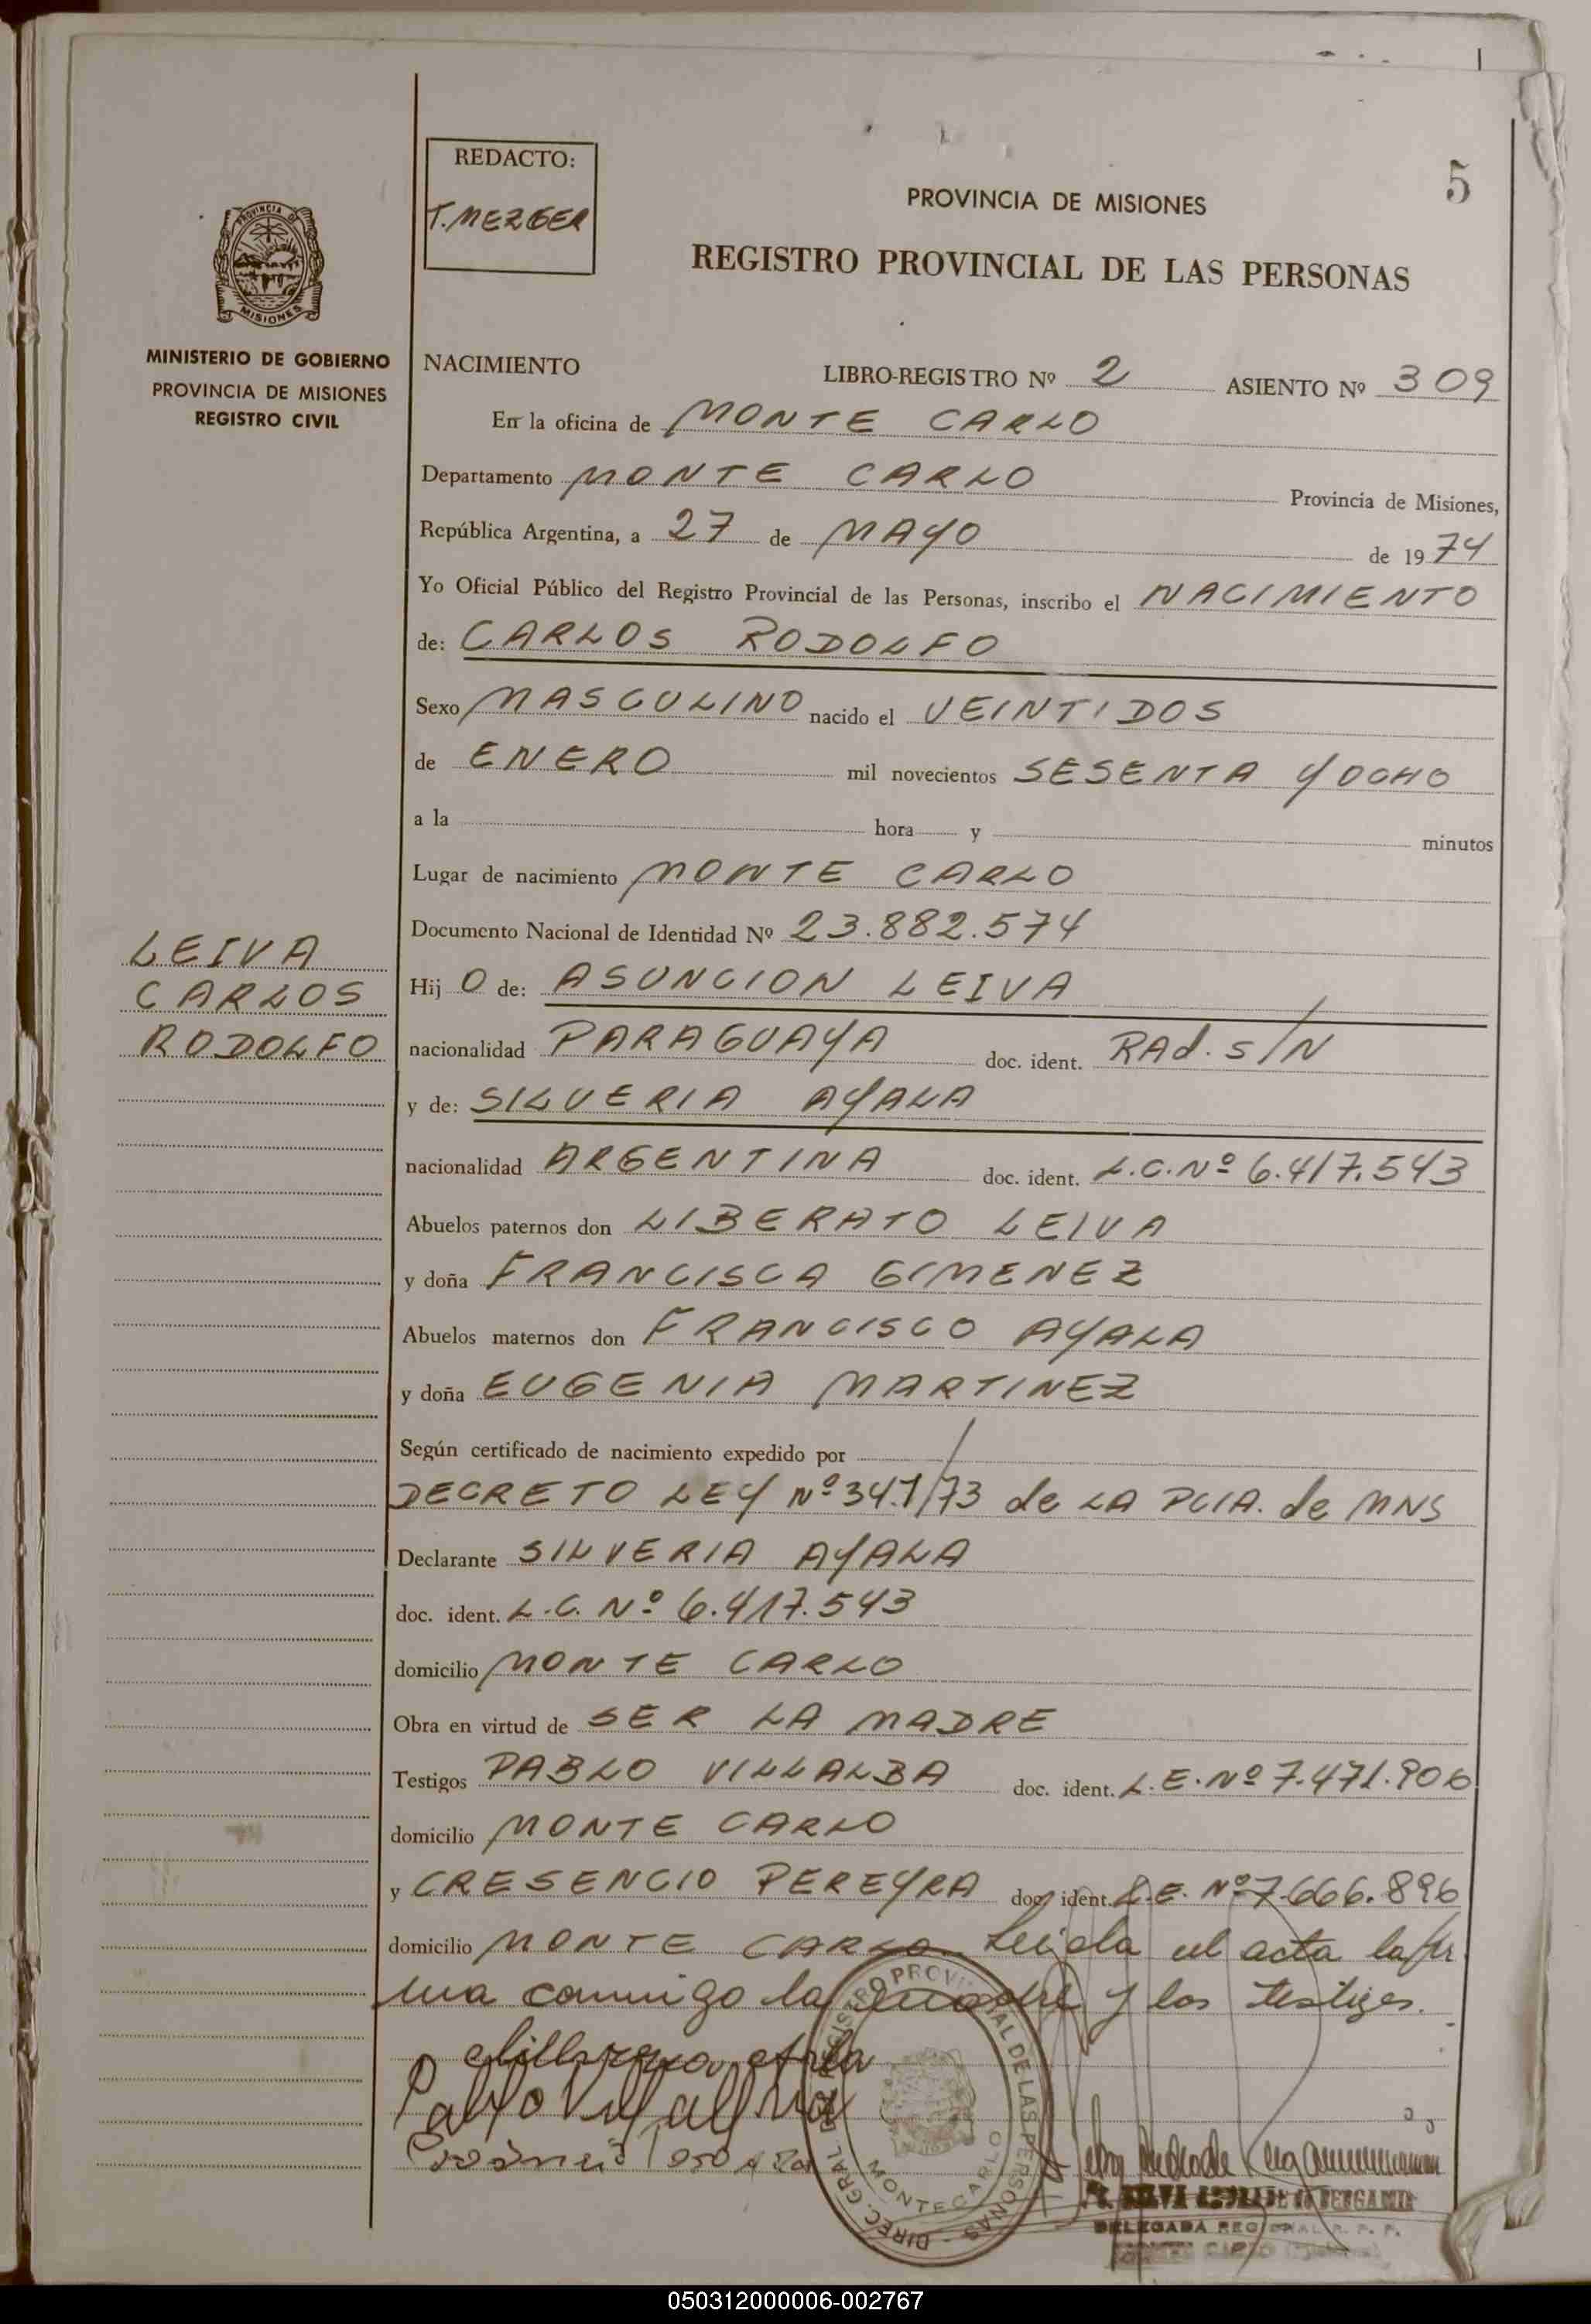 REDACTO:
T. MEZGER
5
PROVINCIA DE MISIONES
REGISTRO PROVINCIAL DE LAS PERSONAS
PROVINCIA D
MISIONES
MINISTERIO DE GOBIERNO
PROVINCIA DE MISIONES
REGISTRO CIVIL
NACIMIENTO LIBRO-REGISTRO Nº 2 ASIENTO Nº 309
En la oficina de MONTE CARLO
Departamento MONTE CARLO Provincia de Misiones,
República Argentina, a 27 de MAYO de 1974
Yo Oficial Público del Registro Provincial de las Personas, inscribo el NACIMIENTO
de: CARLOS RODOLFO
Sexo MASCULINO nacido el VEINTIDOS
de ENERO mil novecientos SESENTA Y OCHO
a la hora y minutos
Lugar de nacimiento MONTE CARLO
Documento Nacional de Identidad Nº 23.882.574
LEIVA
CARLOS
RODOLFO
Hij O de: ASUNCION LEIVA
nacionalidad PARAGUAYA doc. ident. RAd. S/N
y de: SILVERIA AYALA
nacionalidad ARGENTINA doc. ident. L.C. Nº 6.417.543
Abuelos paternos don LIBERATO LEIVA
y doña FRANCISCA GIMENEZ
Abuelos maternos don FRANCISCO AYALA
y doña EUGENIA MARTINEZ
Según certificado de nacimiento expedido por
DECRETO LEY Nº 347/73 de LA PCIA. de MNS
Declarante SILVERIA AYALA
doc. ident. L.C. Nº 6.417.543
domicilio MONTE CARLO
Obra en virtud de SER LA MADRE
Testigos PABLO VILLALBA doc. ident. L.E. Nº 7.471.906
domicilio MONTE CARLO
y CRESENCIO PEREYRA doc. ident. L.E. Nº 7.666.896
domicilio MONTE CARLO. Leida el acta la fir
ma conmigo la madre y los testigos.
Pablo Villalba
DIREC. GRAL. DEL REGISTRO PROVINCIAL DE LAS PERSONAS
MONTECARLO
DELEGADA REGIONAL R. P. P.
MONTE CARLO
050312000006-002767